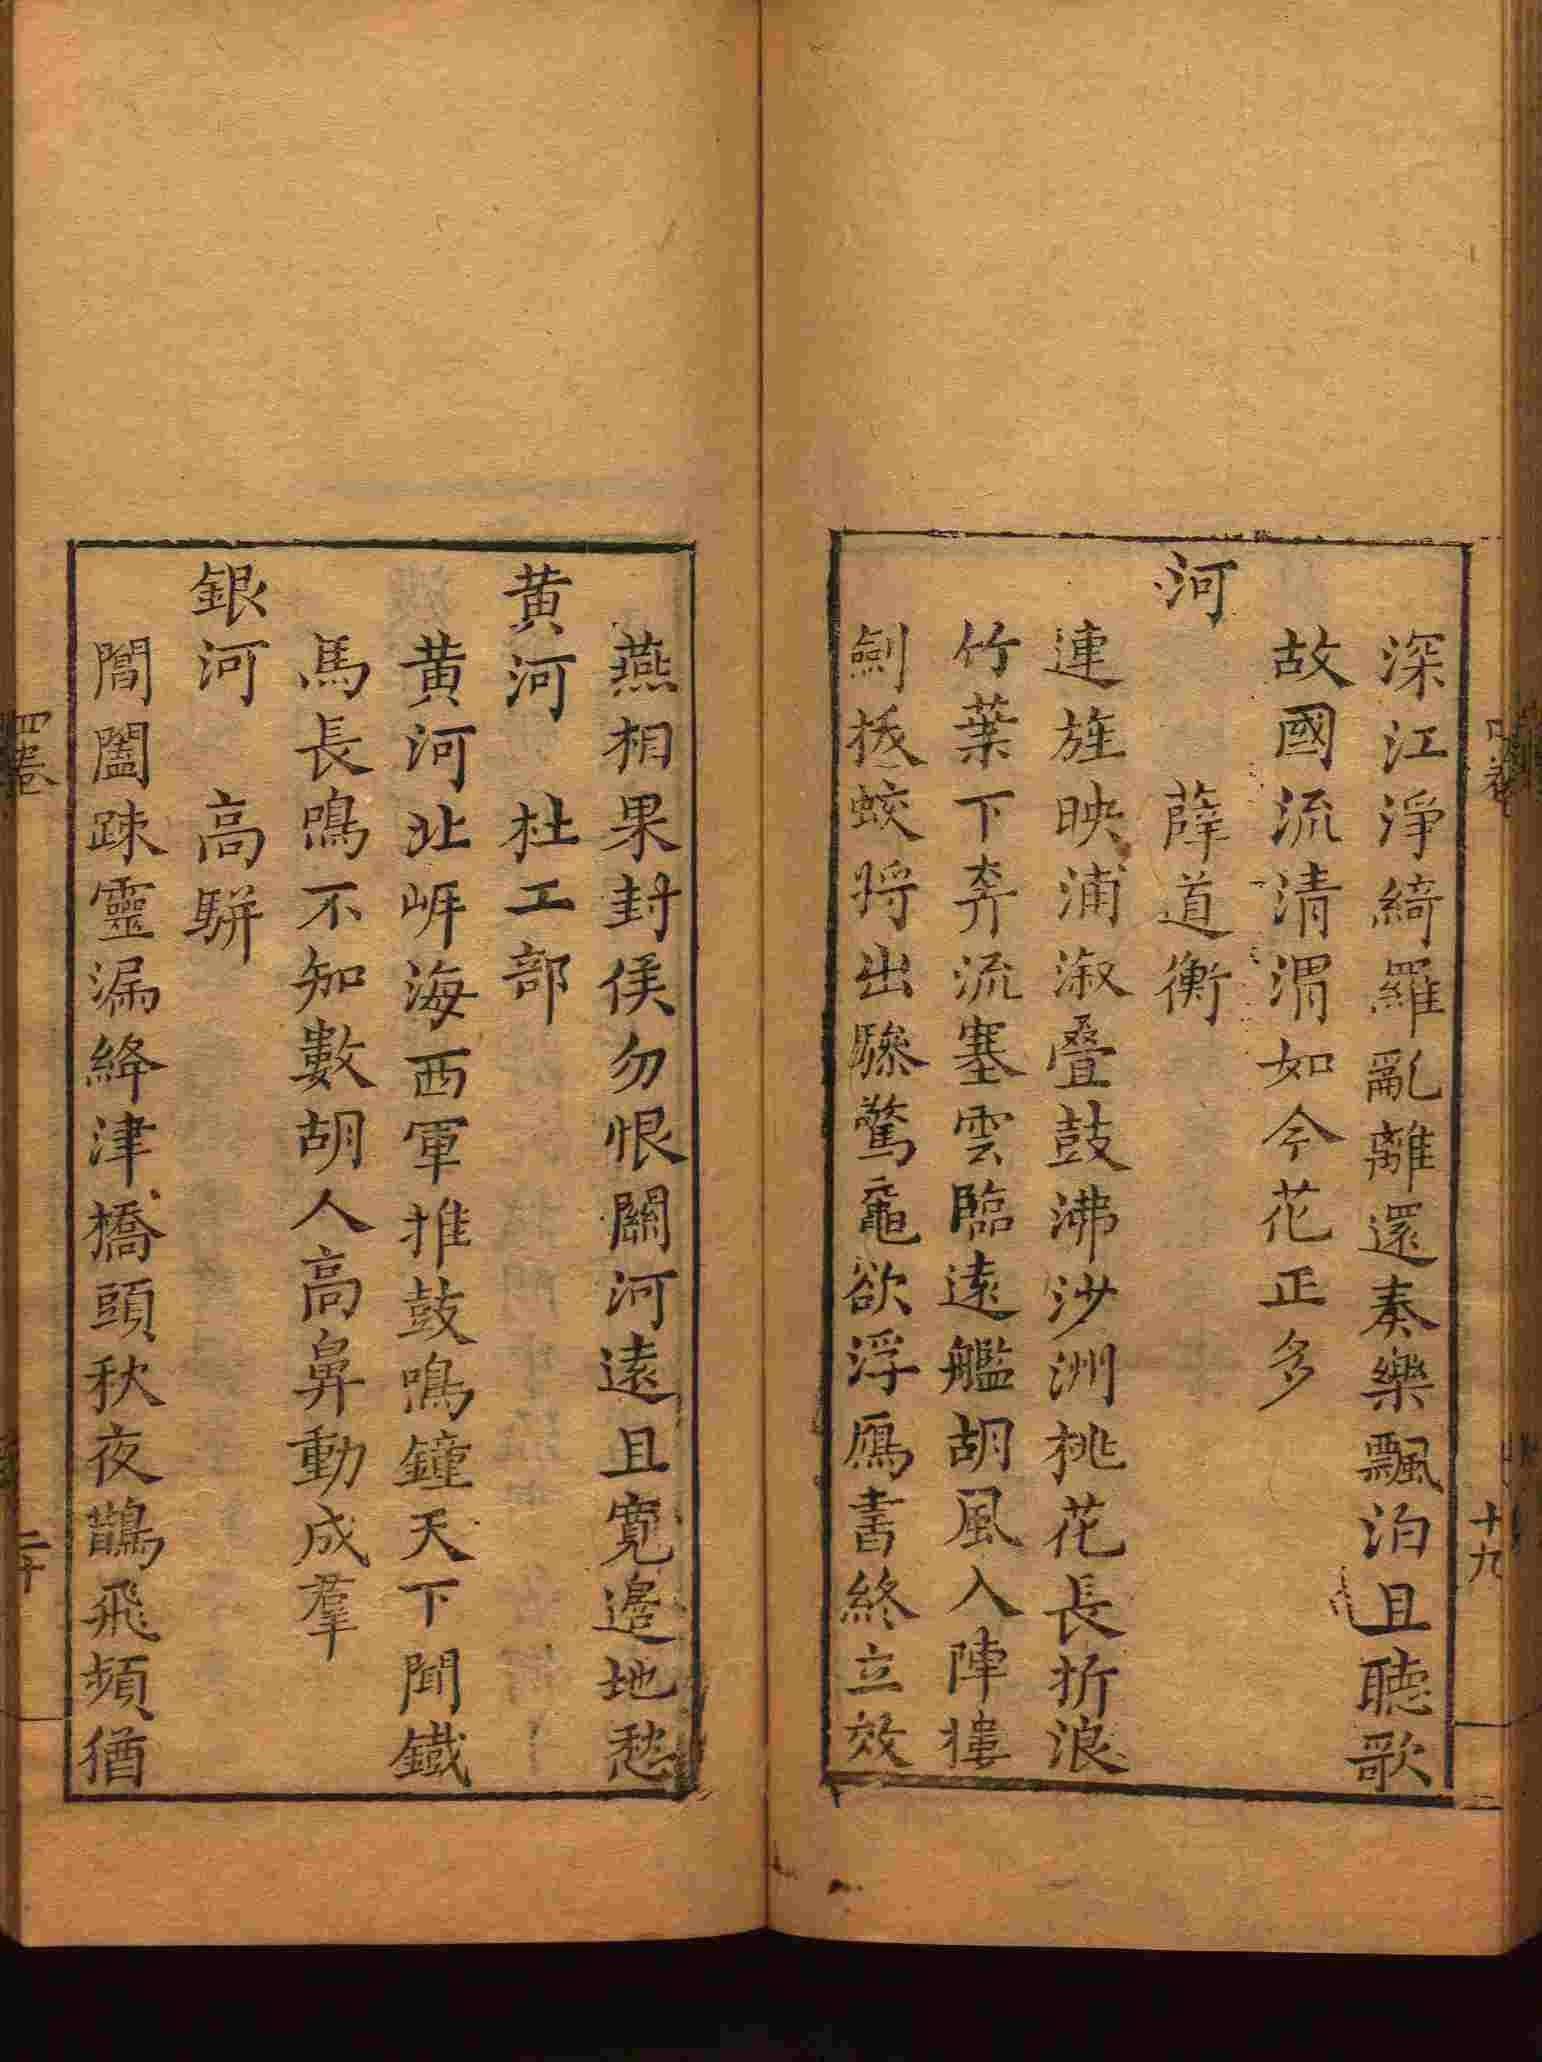 深江淨綺羅亂離還奏樂飄泊且聽歌
故國流清渭如今花正多
河
薛道衡
連旌映浦溆疊鼓沸沙洲桃花長折浪
竹葉下奔流塞雲臨遠艦胡風入陣摟
劍拔蛟將出驂驚黿欲浮鴈書終立效
燕相果封侯勿恨關河遠且寬邉地愁
黃河 杜工部
黃河北岸海西軍推鼓鳴鐘天下聞鐵
馬長鳴不知數胡人高鼻動成羣
銀河 高駢
閶闔踈靈漏絳津橋頭秋夜鵲飛頻猶
十九
四卷
二十